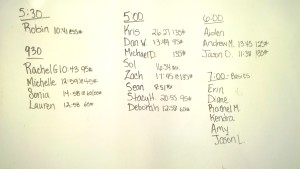 5:30
Robin 10:41 65#
930
Rachel G 10:43 95#
Michelle
Sonia
Lauren 12:58 65#
5:00
Kris 26:27 135#
Dan W. 13:49 95#
Michael D. 135#
Sol
Zach 17:45
Sean
Stacy H. 20:53 95#
Deborah 12:58 65#
6:00
Aiden
Andrew M. 13:43 125#
Jason D. 11:38 135#
7:00 - Basics
Erin
Diane
Rachel M.
Kendra
Amy
Jason L